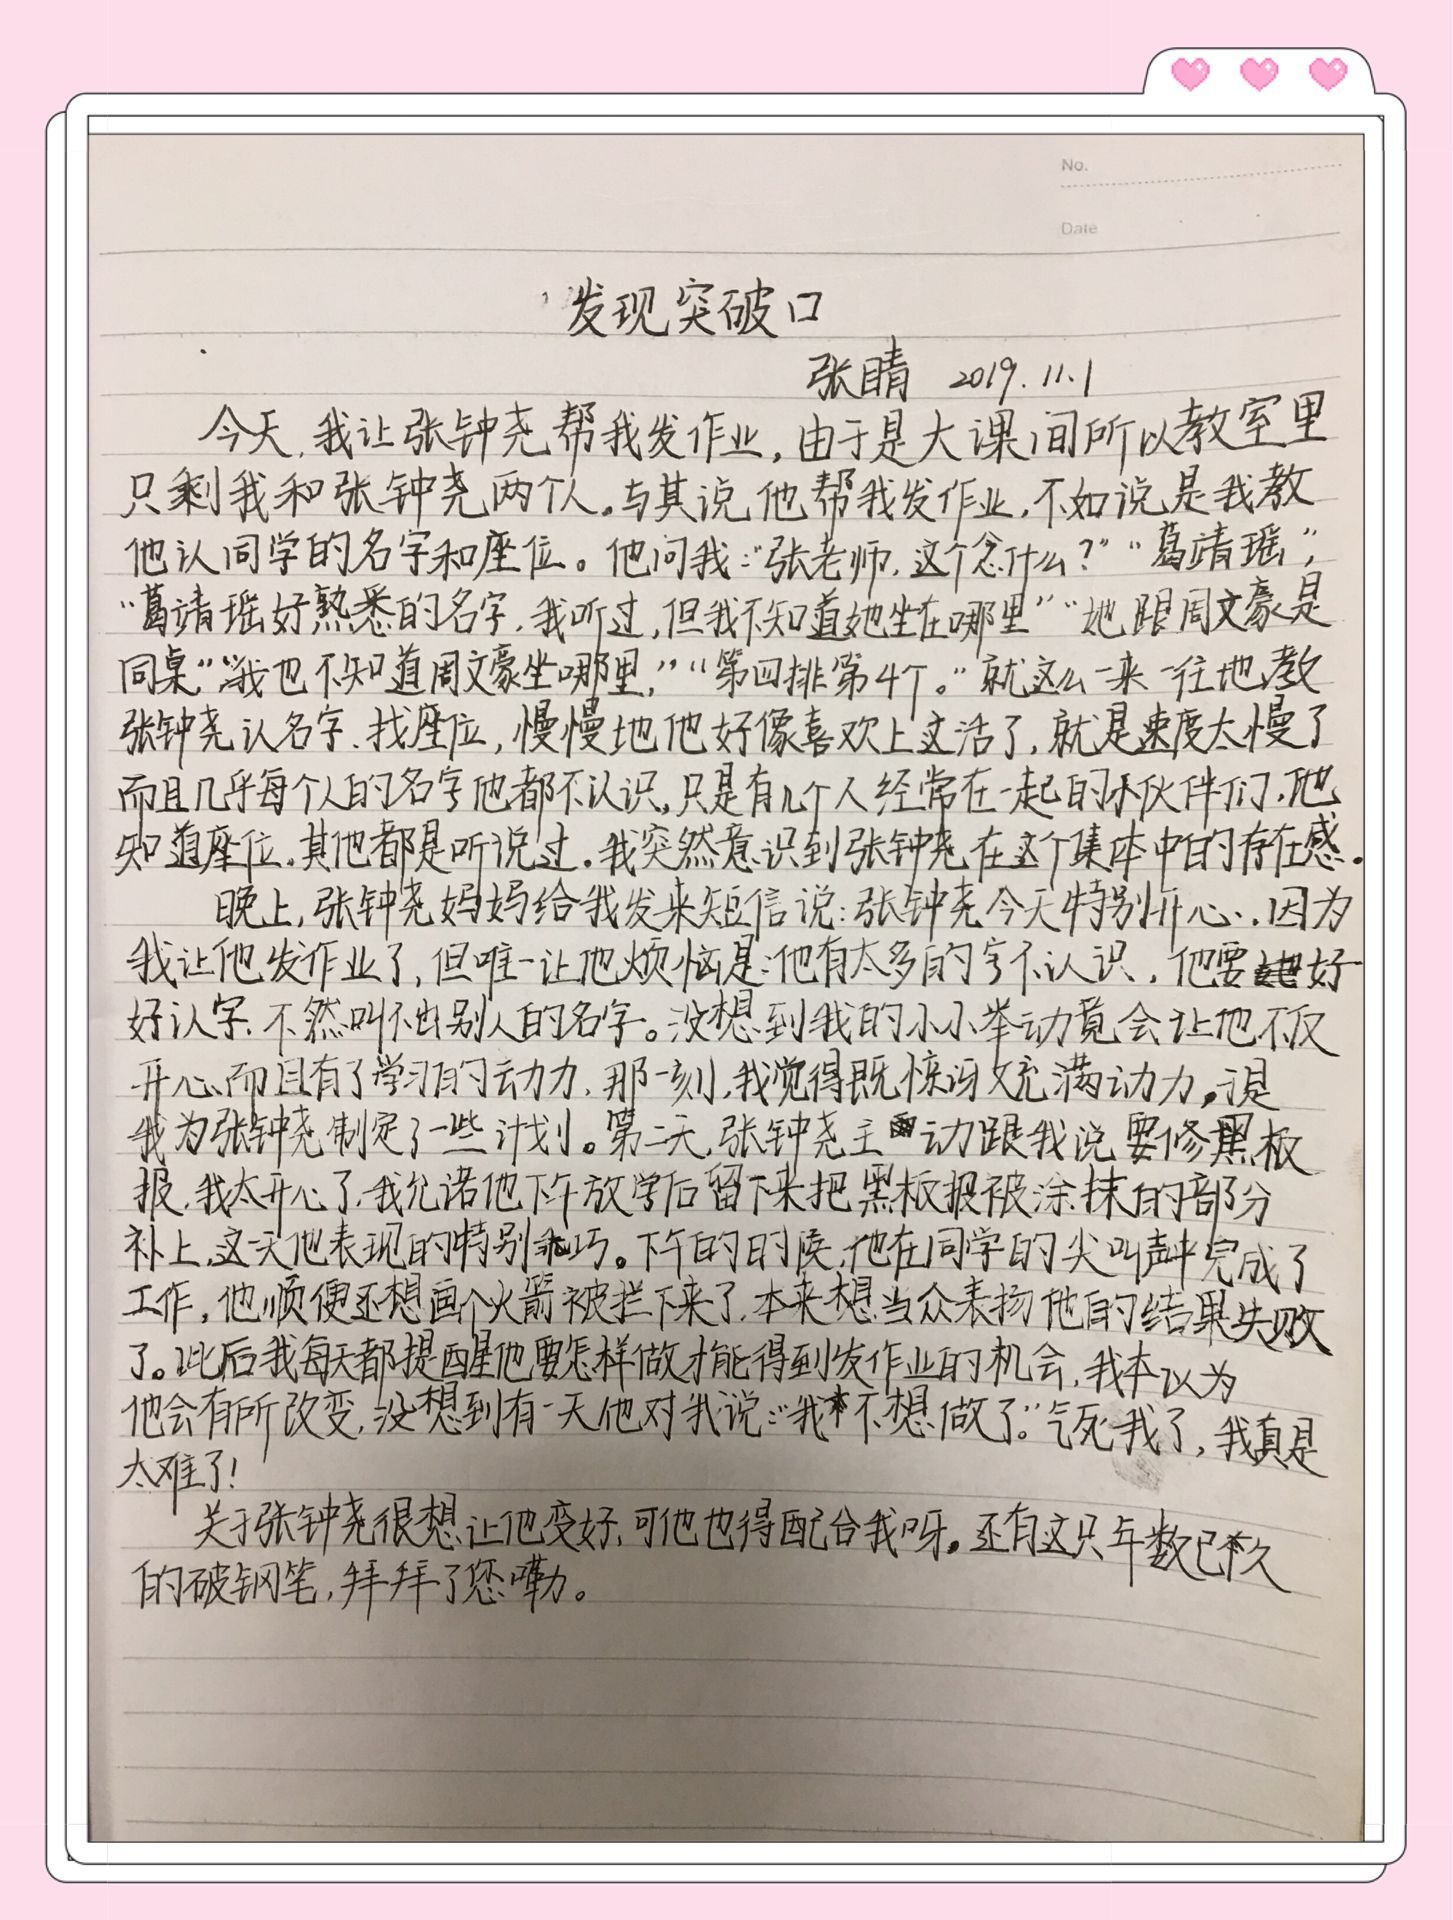 No.
Date
发现突破口
张晴 2019.11.1
今天,我让张钟尧帮我发作业,由于是大课间所以教室里
只剩我和张钟尧两个人。与其说他帮我发作业,不如说是我教
他认同学的名字和座位。他问我:“张老师,这个念什么?”“葛靖瑶”,
“葛靖瑶好熟悉的名字,我听过,但我不知道她坐在哪里”“她跟周文豪是
同桌”“我也不知道周文豪坐哪里,”“第四排第4个。”就这么一来一往地教
张钟尧认名字、找座位,慢慢地他好像喜欢上这活了,就是速度太慢了
而且几乎每个人的名字他都不认识,只是有几个人经常在一起的小伙伴们,他
知道座位,其他都是听说过。我突然意识到张钟尧在这个集体中的存在感。
晚上,张钟尧妈妈给我发来短信说:张钟尧今天特别开心,因为
我让他发作业了,但唯一让他烦恼是:他有太多的字不认识,他要好
好认字,不然叫不出别人的名字。没想到我的小小举动竟会让他不仅
开心,而且有了学习的动力,那一刻,我觉得既惊讶又充满动力。于是
我为张钟尧制定了一些计划。第二天,张钟尧主动跟我说要修黑板
报,我太开心了,我允诺他下午放学后留下来把黑板报被涂抹的部分
补上,这一天他表现的特别乖巧。下午的时候,他在同学的尖叫声中完成了
工作,他顺便还想画个火箭被拦下来了,本来想当众表扬他的结果失败
了。此后我每天都提醒他要怎样做才能得到发作业的机会,我本以为
他会有所改变,没想到有一天他对我说:“我不想做了。”气死我了,我真是
太难了!
关于张钟尧很想让他变好,可他也得配合我呀。还有这只年数已久
的破钢笔,拜拜了您嘞。